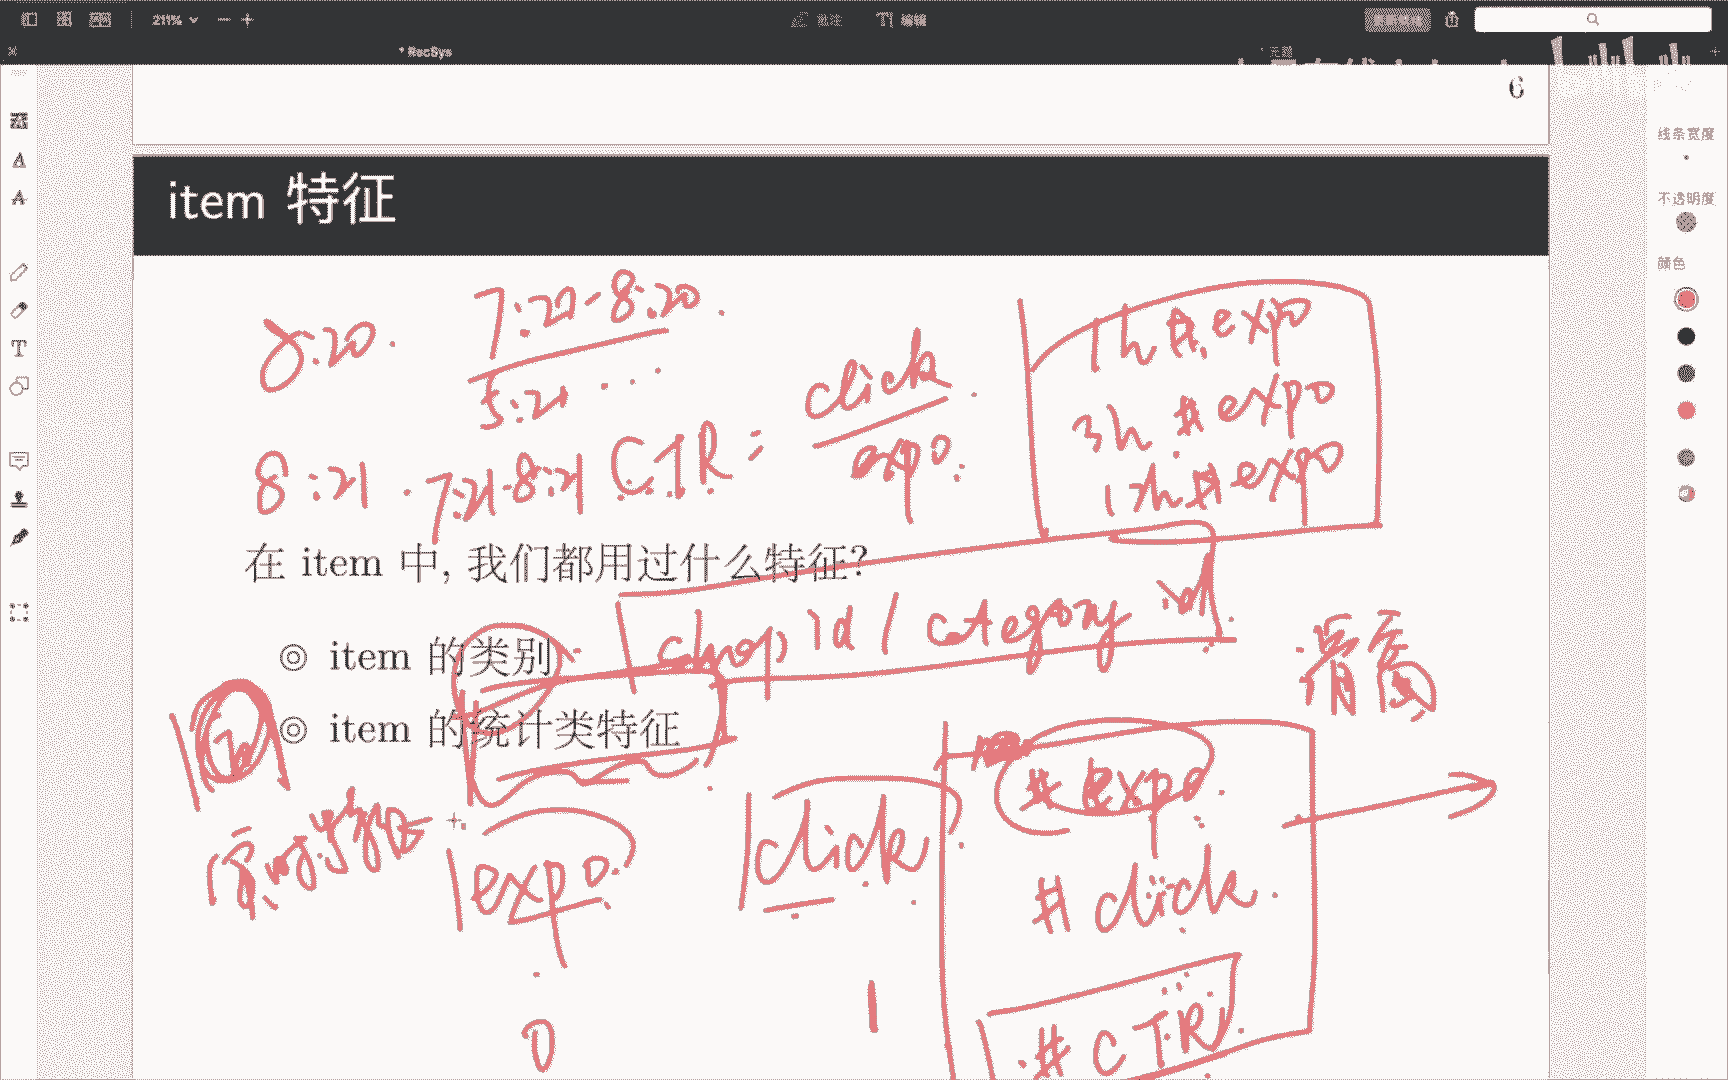 211%
批注
编辑
* RecSys
无题
6
线条宽度
不透明度
颜色
item 特征
8:20.
7:21-8:20.
5:21 ...
8:21 .
7:21-8:21
CTR = click / expo.
1h #expo
3h #expo
12h #expo
在 item 中, 我们都用过什么特征?
shop id / category id
◎ item 的类别
◎ item 的统计类特征
滑窗
实时特征
expo.
click
# expo.
# click.
# CTR
0
1